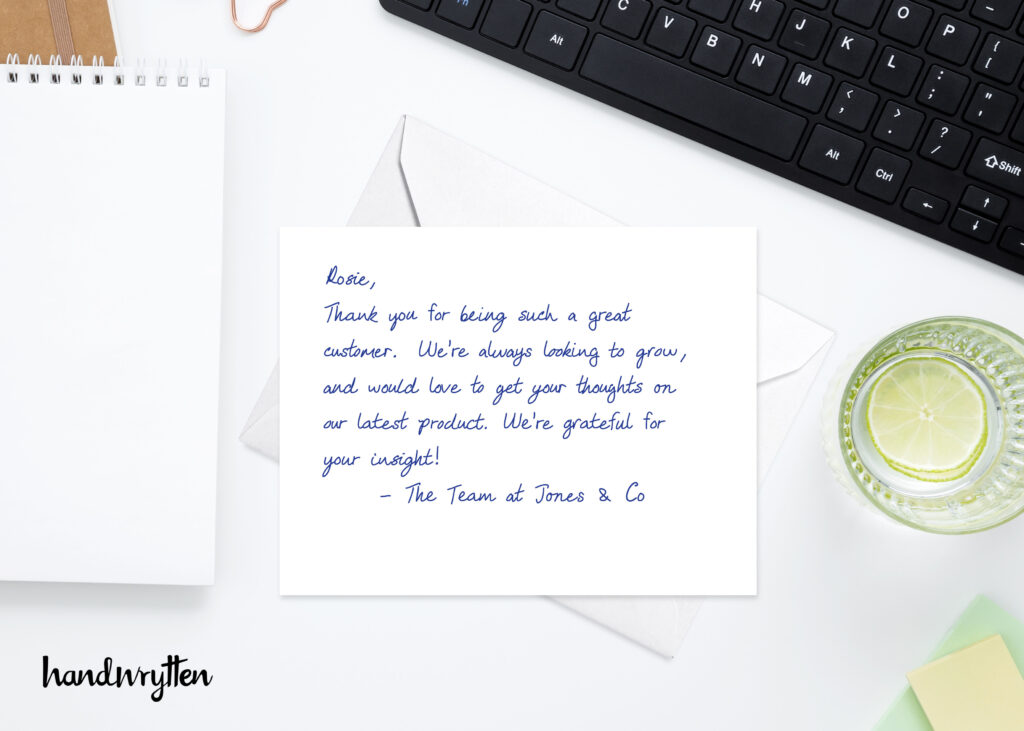 Fn
Alt
C
V
B
N
M
H
J
K
L
O
P
{
[
:
;
"
'
<
,
>
.
?
/
Alt
Ctrl
⇧Shift
←
↑
↓
Rosie,
Thank you for being such a great
customer. We're always looking to grow,
and would love to get your thoughts on
our latest product. We're grateful for
your insight!
- The Team at Jones & Co
handwrytten